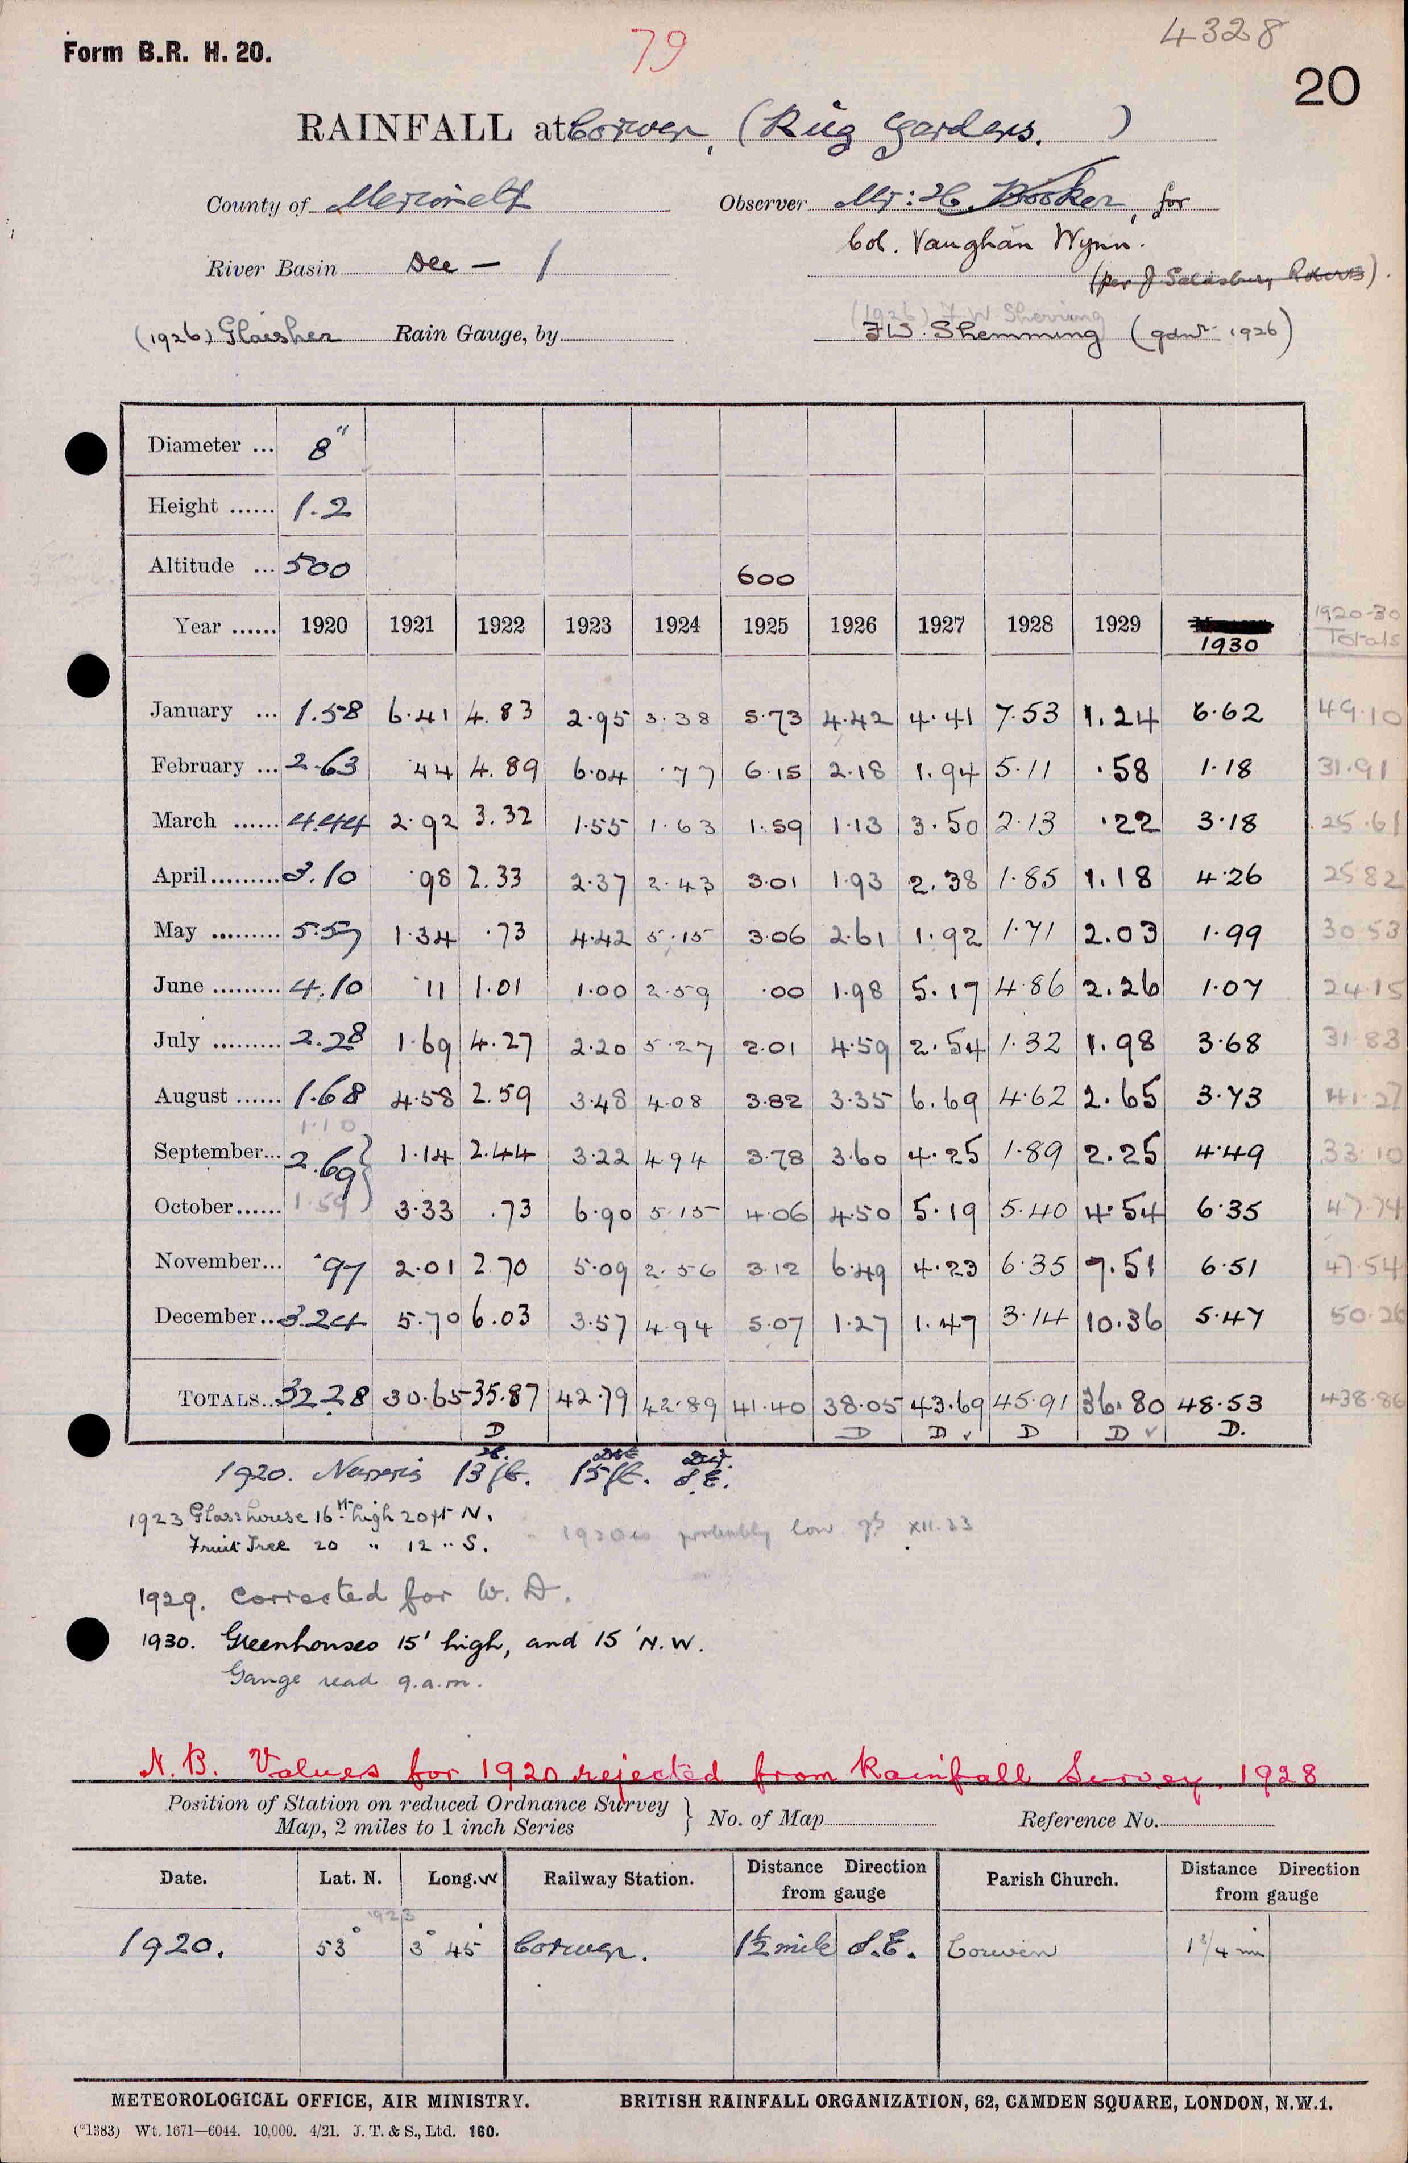 4328
79
Form B.R. H. 20.
20
RAINFALL at Corwen, (Rûg Gardens. )
County of Merioneth Observer Mr: H. Booker, for
Col. Vaughan Wynn.
River Basin Dee — 1
(per J Salisbury Roberts).
(1926) F W Shemming
(1926) Glaisher Rain Gauge, by F.W. Shemming (gdnr 1926)
Diameter ... 8"
Height ...... 1.2
Altitude ... 500 600
Year ...... 1920 1921 1922 1923 1924 1925 1926 1927 1928 1929 1930 1920-30 Totals
January ... 1.58 6.41 4.83 2.95 3.38 5.73 4.42 4.41 7.53 1.24 6.62 49.10
February ... 2.63 .44 4.89 6.04 .77 6.15 2.18 1.94 5.11 .58 1.18 31.91
March ...... 4.44 2.92 3.32 1.55 1.63 1.59 1.13 3.50 2.13 .22 3.18 25.61
April ......... 3.10 .98 2.33 2.37 2.43 3.01 1.93 2.38 1.85 1.18 4.26 25.82
May ......... 5.57 1.34 .73 4.42 5.15 3.06 2.61 1.92 1.71 2.03 1.99 30.53
June ......... 4.10 .11 1.01 1.00 2.59 .00 1.98 5.17 4.86 2.26 1.07 24.15
July ......... 2.28 1.69 4.27 2.20 5.27 2.01 4.59 2.54 1.32 1.98 3.68 31.83
August ...... 1.68 4.58 2.59 3.48 4.08 3.82 3.35 6.69 4.62 2.65 3.73 41.27
1.10
September... 2.69 } 1.14 2.44 3.22 4.94 3.78 3.60 4.25 1.89 2.25 4.49 33.10
October...... 1.59 3.33 .73 6.90 5.15 4.06 4.50 5.19 5.40 4.54 6.35 47.74
November... .97 2.01 2.70 5.09 2.56 3.12 6.49 4.23 6.35 7.51 6.51 47.54
December.. 3.24 5.70 6.03 3.57 4.94 5.07 1.27 1.47 3.14 10.36 5.47 50.26
TOTALS.. 32.28 30.65 35.87 42.79 42.89 41.40 38.05 43.69 45.91 36.80 48.53 438.86
D D D D D D.
1920. 13 ft. 15 ft. S.E.
1923 Glasshouse 16 ft high 20 ft N.
Fruit Tree 20 " 12 " S.
1920 is probably low XII.23
1929. Corrected for W. D.
1930. Greenhouses 15' high, and 15' N.W.
Gauge read 9.a.m.
N.B. Values for 1920 rejected from Rainfall Survey, 1928
Position of Station on reduced Ordnance Survey Map, 2 miles to 1 inch Series } No. of Map Reference No.
Date. Lat. N. Long. W Railway Station. Distance Direction from gauge Parish Church. Distance Direction from gauge
1923
1920. 53° 3° 45' Corwen. 1½ mile S.E. Corwen 1 3/4 mi
METEOROLOGICAL OFFICE, AIR MINISTRY. BRITISH RAINFALL ORGANIZATION, 62, CAMDEN SQUARE, LONDON, N.W.1.
(*1383) Wt. 1671—6044. 10,000. 4/21. J. T. & S., Ltd. 160.